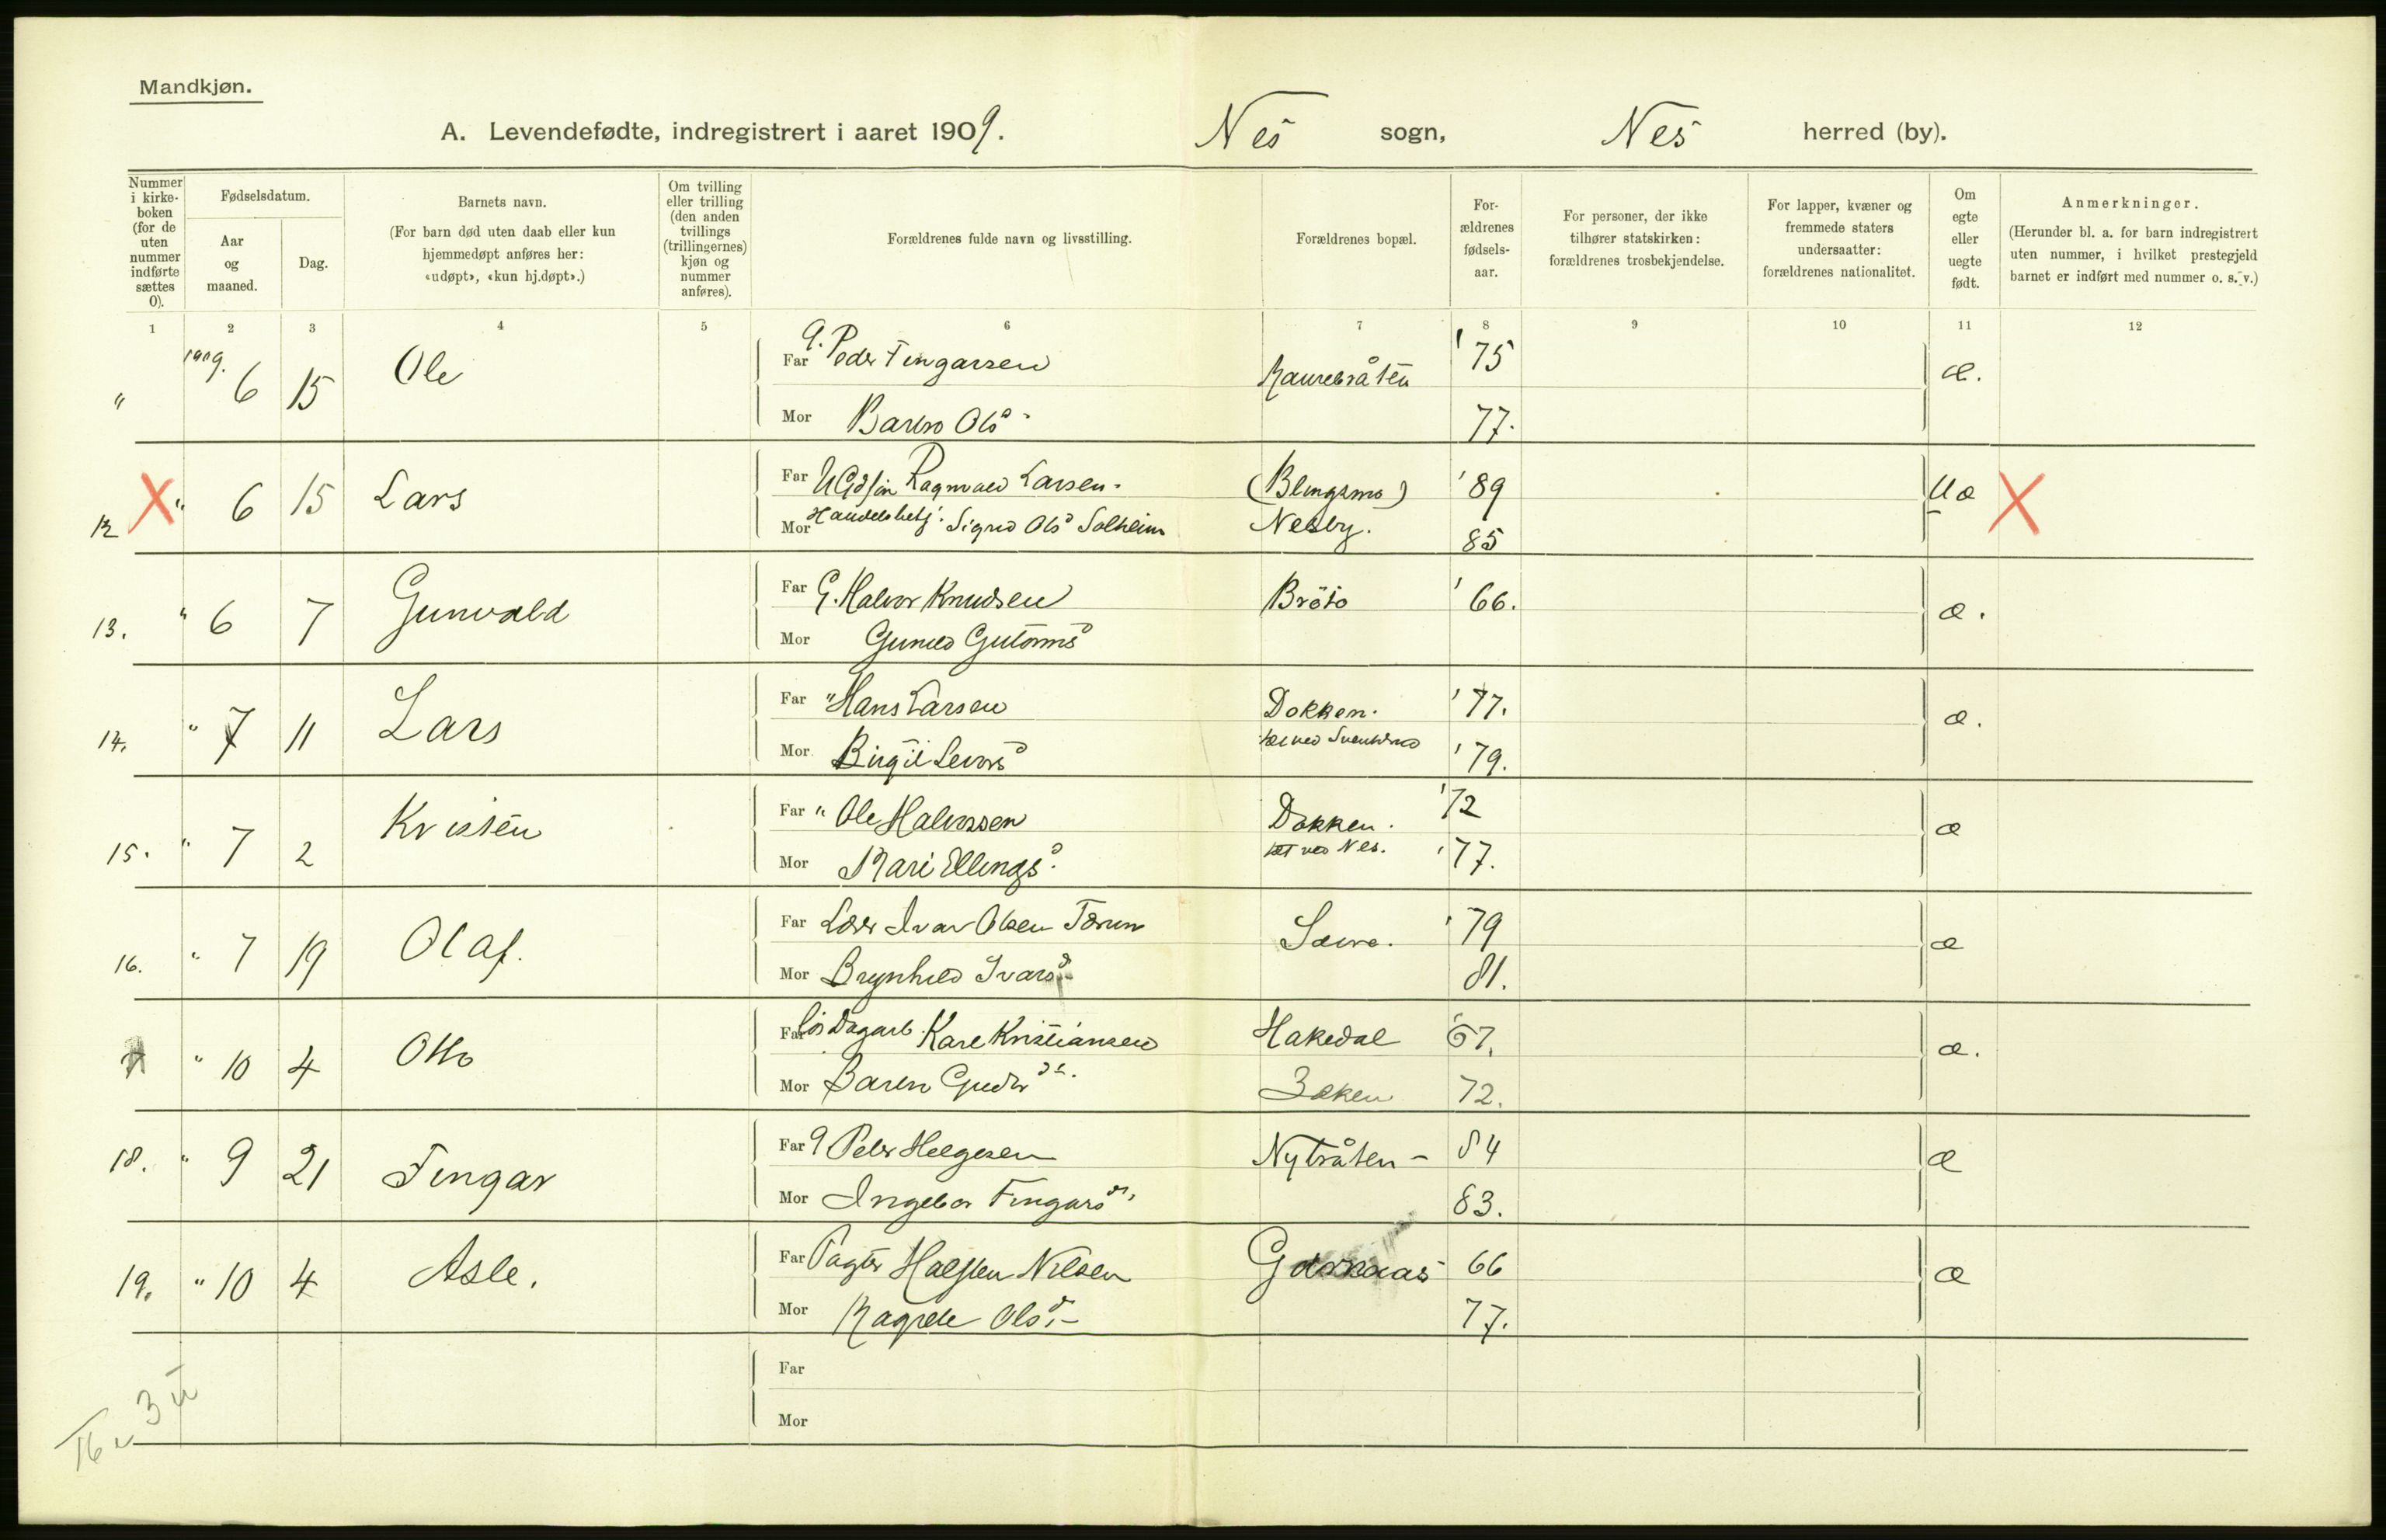 Mandkjøn.
A. Levendefødte, indregistrert i aaret 1909. Nes sogn, Nes herred (by).
Nummer i kirke-boken (for de uten nummer indførte sættes 0).
Fødselsdatum.
Aar og maaned.
Dag.
Barnets navn.
(For barn død uten daab eller kun hjemmedøpt anføres her: «udøpt», «kun hj.døpt».)
Om tvilling eller trilling (den anden tvillings (trillingernes) kjøn og nummer anføres).
Forældrenes fulde navn og livsstilling.
Forældrenes bopæl.
For-ældrenes fødsels-aar.
For personer, der ikke tilhører statskirken: forældrenes trosbekjendelse.
For lapper, kvæner og fremmede staters undersaatter: forældrenes nationalitet.
Om egte eller uegte født.
Anmerkninger.
(Herunder bl. a. for barn indregistrert uten nummer, i hvilket prestegjeld barnet er indført med nummer o. s. v.)
1 2 3 4 5 6 7 8 9 10 11 12
" 1909. 6 15 Ole Far G. Peder Fingarsen '75 æ.
Mor Barbro Olsd 77.
12 X " 6 15 Lars Far Ragnvald Larsen. '89 Uæ X
Mor Handelsbetj. Sigrid Olsd Solheim Nesby. 85
13. " 6 7 Gunvald Far G. Halvor Knudsen Bröto '66. æ.
Mor Gunild Gutormsd
14. " 7 11 Lars Far " Hans Larsen Dokken. '77. æ.
Mor Birgit Leversd '79.
15. " 7 2 Kristen Far " Ole Halvorsen Dokken. '72 æ
Mor Kari Ellingsd. tæt ved Nes. '77.
16. " 7 19 Olaf. Far Lærer Ivar Olsen Sævre. '79 æ
Mor Brynhild Ivarsd 81.
" 10 4 Otto Far Løsdagarb. Karl Kristiansen Hakedal '67. æ.
Mor Barbro 72.
18. " 9 21 Fingar Far G Peder Helgesen Nybråten - 84 æ
Mor Ingebor Fingarsd. 83.
19. " 10 4 Asle. Far Halsten Nilsen 66 æ
Mor Olsd. - 77.
Far
Mor